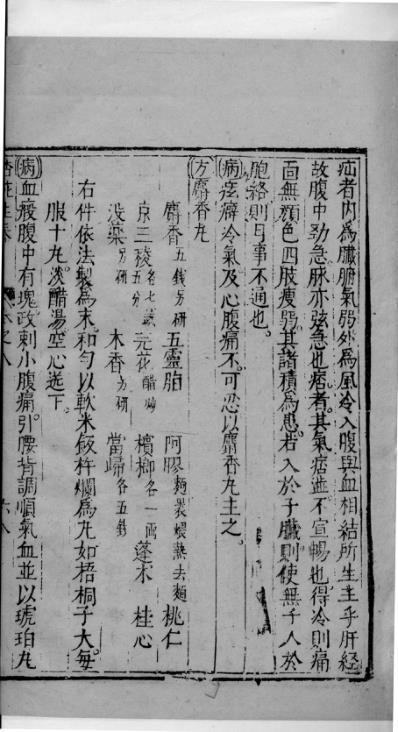 疝者内為臟腑氣弱外為風冷入腹與血相結所生主乎肝經
故腹中劲急脉亦弦急也痞者其氣痞並不宣暢也得冷則痛
面無顔色四肢瘦弱其諸積為患若入於子臟則使無子入於
胞絡則月事不通也
病痃癖冷氣及心腹痛不可忍以麝香丸主之
方麝香丸
麝香五錢另研 五靈脂 阿膠麵裹煨熱去麵 桃仁
京三稜各七錢五分 元花醋炒 檳榔各一兩 蓬木 桂心
没藥另研 木香另研 當歸各五錢
右件依法製為末和勻以軟米飯杵爛為丸如梧桐子大每
服十丸淡醋湯空心送下
病血瘕腹中有塊政刺小腹痛引腰背調順氣血並以琥珀丸
六八